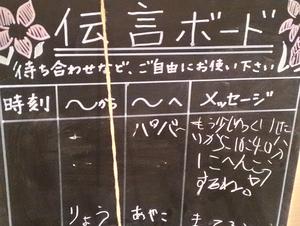 伝言ボード
待ち合わせなど、ご自由にお使い下さい
時刻 〜から 〜へ メッセージ
パパへ
もう少しゆっくりした
いから16:40分
にへんこう
するね。
りょう あやこ